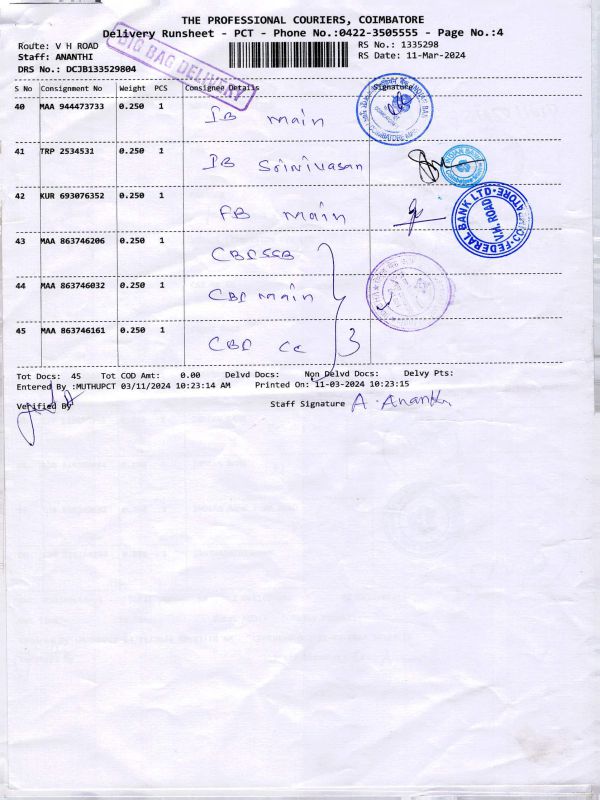 THE PROFESSIONAL COURIERS, COIMBATORE
Delivery Runsheet - PCT - Phone No.:0422-3505555 - Page No.:4
Route: V H ROAD RS No.: 1335298
Staff: ANANTHI RS Date: 11-Mar-2024
DRS No.: DCJB133529804
BIG BAG DELIVERY
S No Consignment No Weight PCS Consignee Details Signature
40 MAA 944473733 0.250 1 IB main
41 TRP 2534531 0.250 1 IB Srinivasan
INDIAN BANK
42 KUR 693076352 0.250 1 FB main
FEDERAL BANK LTD. V.H. ROAD
43 MAA 863746206 0.250 1 CBI SSB
44 MAA 863746032 0.250 1 CBI main
45 MAA 863746161 0.250 1 CBI CC 3
Tot Docs: 45 Tot COD Amt: 0.00 Delvd Docs: Non Delvd Docs: Delvy Pts:
Entered By :MUTHUPCT 03/11/2024 10:23:14 AM Printed On: 11-03-2024 10:23:15
Verified By Staff Signature A. Ananthi